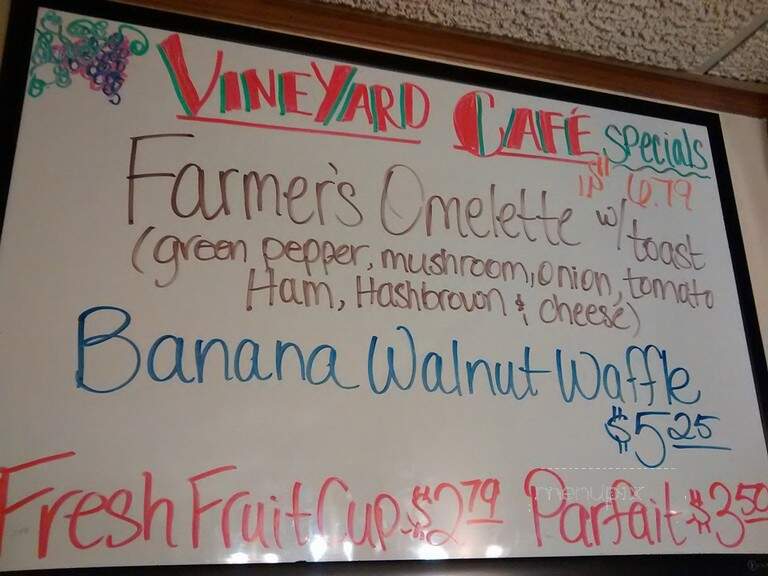 VINEYARD CAFÉ specials
6.79
Farmer's Omelette w/ toast
(green pepper, mushroom, onion, tomato
Ham, Hashbrown & cheese)
Banana Walnut Waffle
$5.25
Fresh Fruit Cup $2.79 Parfait $3.50
menupix